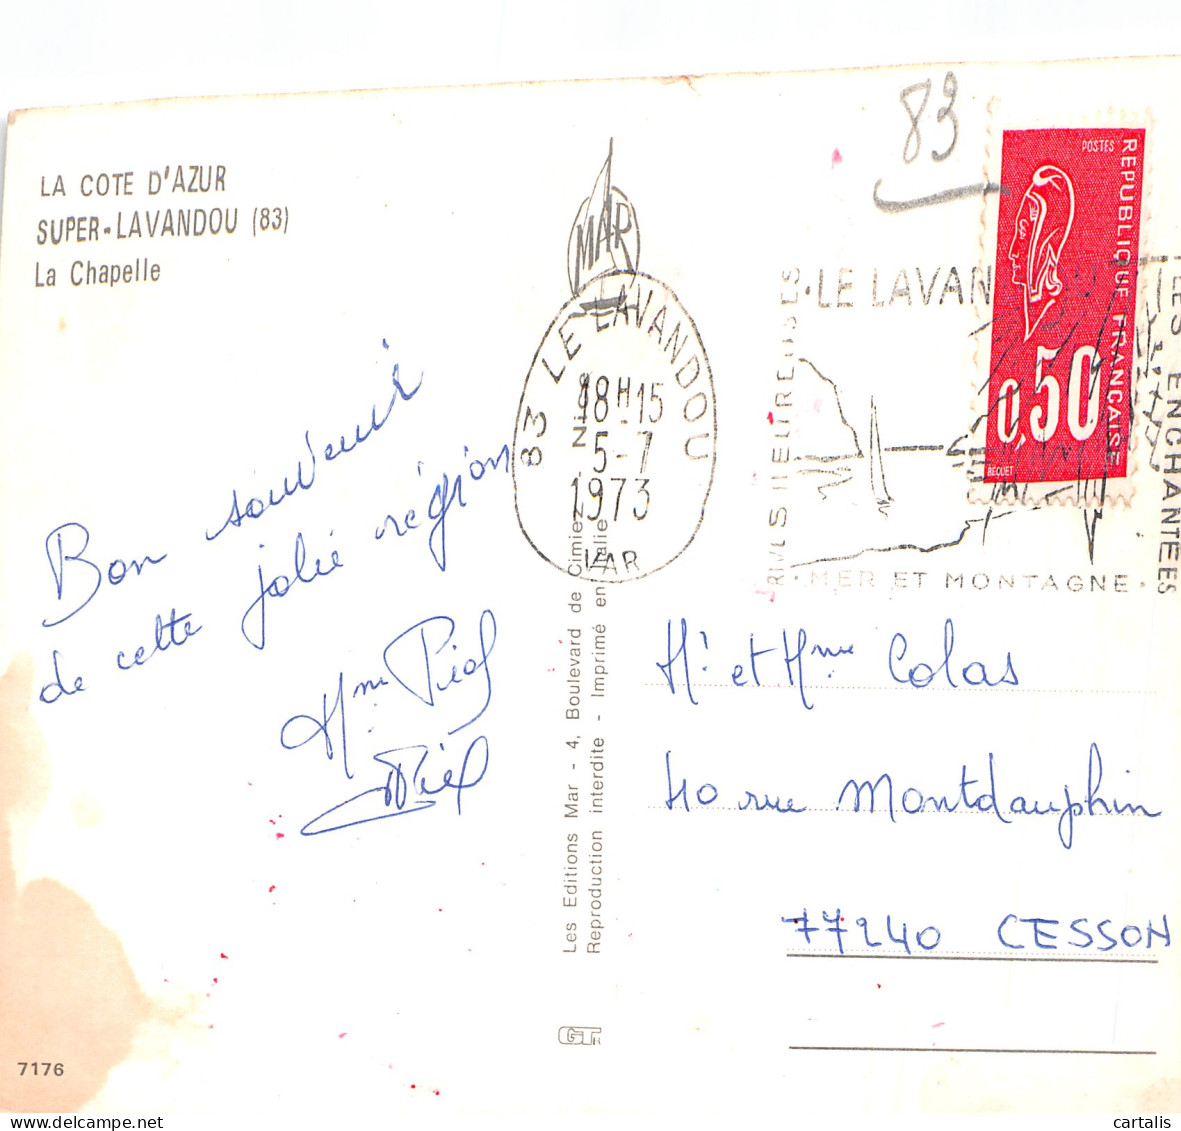 83
LA COTE D'AZUR
SUPER-LAVANDOU (83)
La Chapelle
MAR
POSTES
REPUBLIQUE FRANÇAISE
0,50
BEQUET
83 LE LAVANDOU
18H-15
5-7
1973
VAR
•LE LAVAN
RIVES HEUREUSES
•MER ET MONTAGNE•
ILES ENCHANTEES
Bon souvenir
de cette jolie région
Mme
Les Editions Mar - 4, Boulevard de Cimiez - Nice
Reproduction interdite - Imprimé en Italie
Mr et Mme Colas
40 rue Montdauphin
77240 CESSON
GT
7176
cartalis